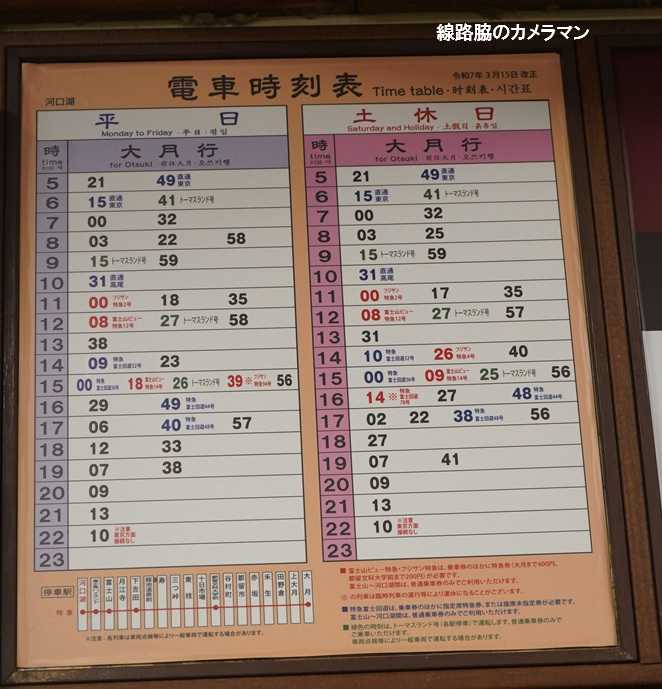 線路脇のカメラマン
電車時刻表 Time table・时刻表・시간표
令和7年3月15日 改正
河口湖
平日
Monday to Friday・平日・평일
時 time
大月行
for Otsuki
5 21 49 直通東京
6 15 直通東京 41 トーマスランド号
7 00 32
8 03 22 58
9 15 トーマスランド号 59
10 31 直通高尾
11 00 フジサン特急2号 18 35
12 08 富士山ビュー特急12号 27 トーマスランド号 58
13 38
14 09 特急 23
15 00 特急 18 富士山ビュー特急14号 26 トーマスランド号 39 ※ フジサン 56
16 29 49 特急富士回遊44号
17 06 40 特急富士回遊48号 57
18 12 33
19 07 38
20 09
21 13
22 10 ※注意 東京方面 接続なし
23
土休日
Saturday and Holiday
時 time
大月行
for Otsuki
5 21 49 直通東京
6 15 直通東京 41 トーマスランド号
7 00 32
8 03 25
9 15 トーマスランド号 59
10 31 直通高尾
11 00 フジサン特急2号 17 35
12 08 富士山ビュー特急12号 27 トーマスランド号 57
13 31
14 10 特急 26 フジサン特急4号 40
15 00 特急 09 富士山ビュー特急14号 25 トーマスランド号 56
16 14 ※ 特急富士回遊 27 48 特急富士回遊44号
17 02 22 38 特急富士回遊48号 56
18 27
19 07 41
20 09
21 13
22 10 ※注意 東京方面 接続なし
23
停車駅
特急
河口湖 富士山 月江寺 下吉田 寿 三つ峠 東桂 十日市場 谷村町 都留市 赤坂 禾生 田野倉 上大月 大月
■富士山ビュー特急・フジサン特急は、乗車券のほかに特急券(大月まで400円、
都留文科大学前まで200円)が必要です。
富士山～河口湖間は、普通乗車券のみでご利用いただけます。
■特急富士回遊は、乗車券のほかに指定席特急券、または座席未指定券が必要です。
富士山～河口湖間は、普通乗車券のみでご利用いただけます。
■緑色の時刻は、トーマスランド号(各駅停車)で運転します。普通乗車券のみで
ご乗車いただけます。